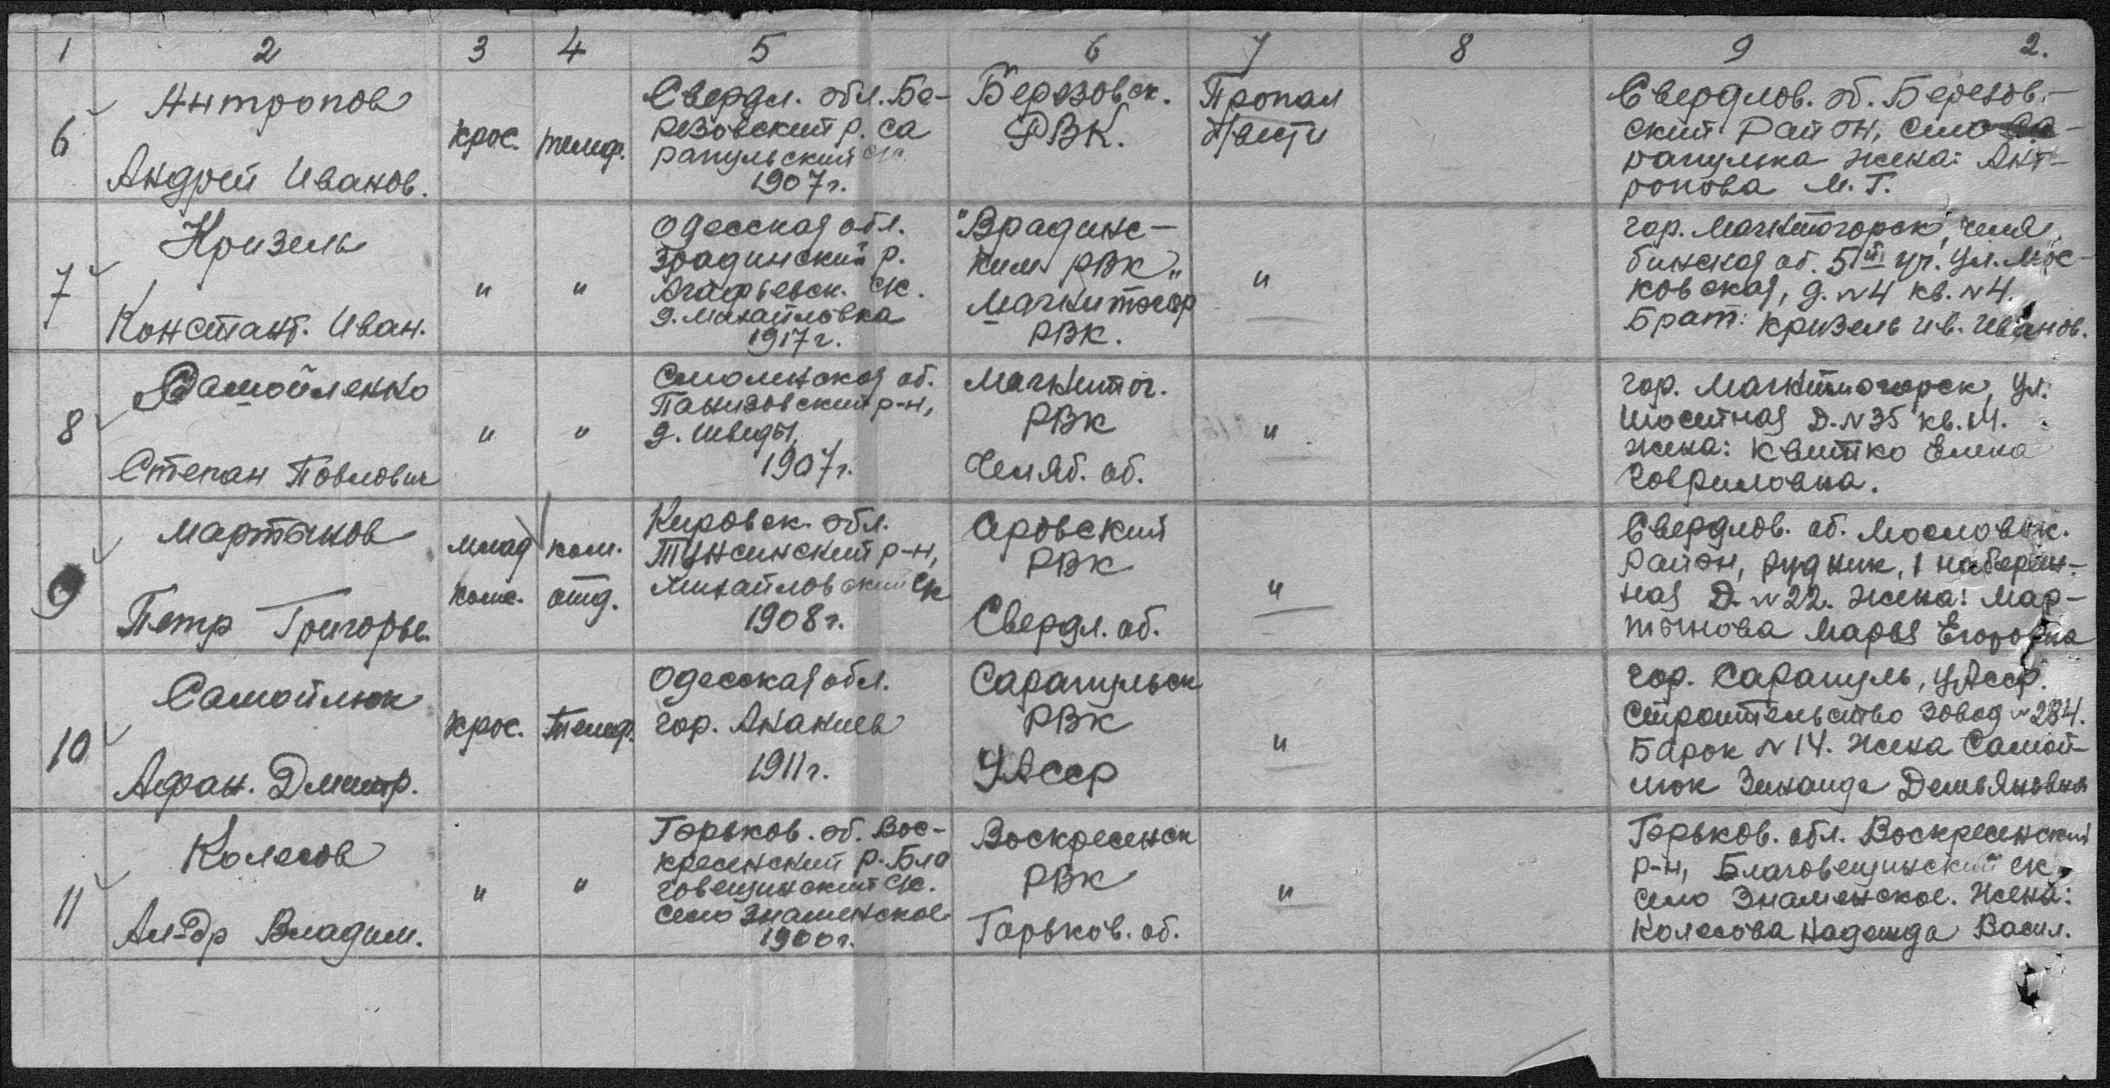 1 2 3 4 5 6 7 8 9 2.
6
Антропов
Андрей Иванов.
крас.
телеф.
Свердл. обл. Бе-
резовский р. са
рапульский с/с
1907 г.
Березовск.
РВК.
Пропал
б/вести
Свердлов. об. Березов-
ский район, село Са-
рапулка жена: Ант-
ропова М. Г.
7
Кризель
Констант. Иван.
"
"
Одесская обл.
Врадинский р.
Агафьевск. с/с.
д. Михайловка
1917 г.
"Врадинс-
ким РВК"
Магнитогор
РВК.
"
гор. Магнитогорск, Челя
бинская об. 5й уч. ул. Мос-
ковская, д. №4 кв. №4.
Брат: Кризель Ив. Иванов.
8
Самойленко
Степан Павлович
"
"
Смоленская об.
д. Шведы,
1907 г.
Магнитог.
РВК
Челяб. об.
"
гор. Магнитогорск, ул.
Д. №35 кв.
жена: Квитко Елена
Гавриловна.
9
Мартынов
Петр Григорье.
млад
ком.
ком.
отд.
Кировск. обл.
Тужинский р-н,
Михайловский с/с
1908 г.
РВК
Свердл. об.
"
Свердлов. об.
район, рудник, 1 набереж-
ная Д. №22. жена: Мар-
тынова Марья Егоровна
10
Самойлюк
Афан. Дмитр.
крас.
телеф.
Одесская обл.
гор. Ананьев
1911 г.
Сарапульск
РВК
УАССР
"
гор. Сарапуль, УАССР.
Строительство завод №284.
Барак №14. жена Самой-
люк Зинаида Демьяновна
11
Колесов
Ал-др Владим.
"
"
Горьков. об. Вос-
кресенский р. Бла
говещинский с/с.
село Знаменское
1900 г.
Воскресенск
РВК
Горьков. об.
"
Горьков. обл. Воскресенский
р-н, Благовещинский с/с
село Знаменское. Жена:
Колесова Надежда Васил.